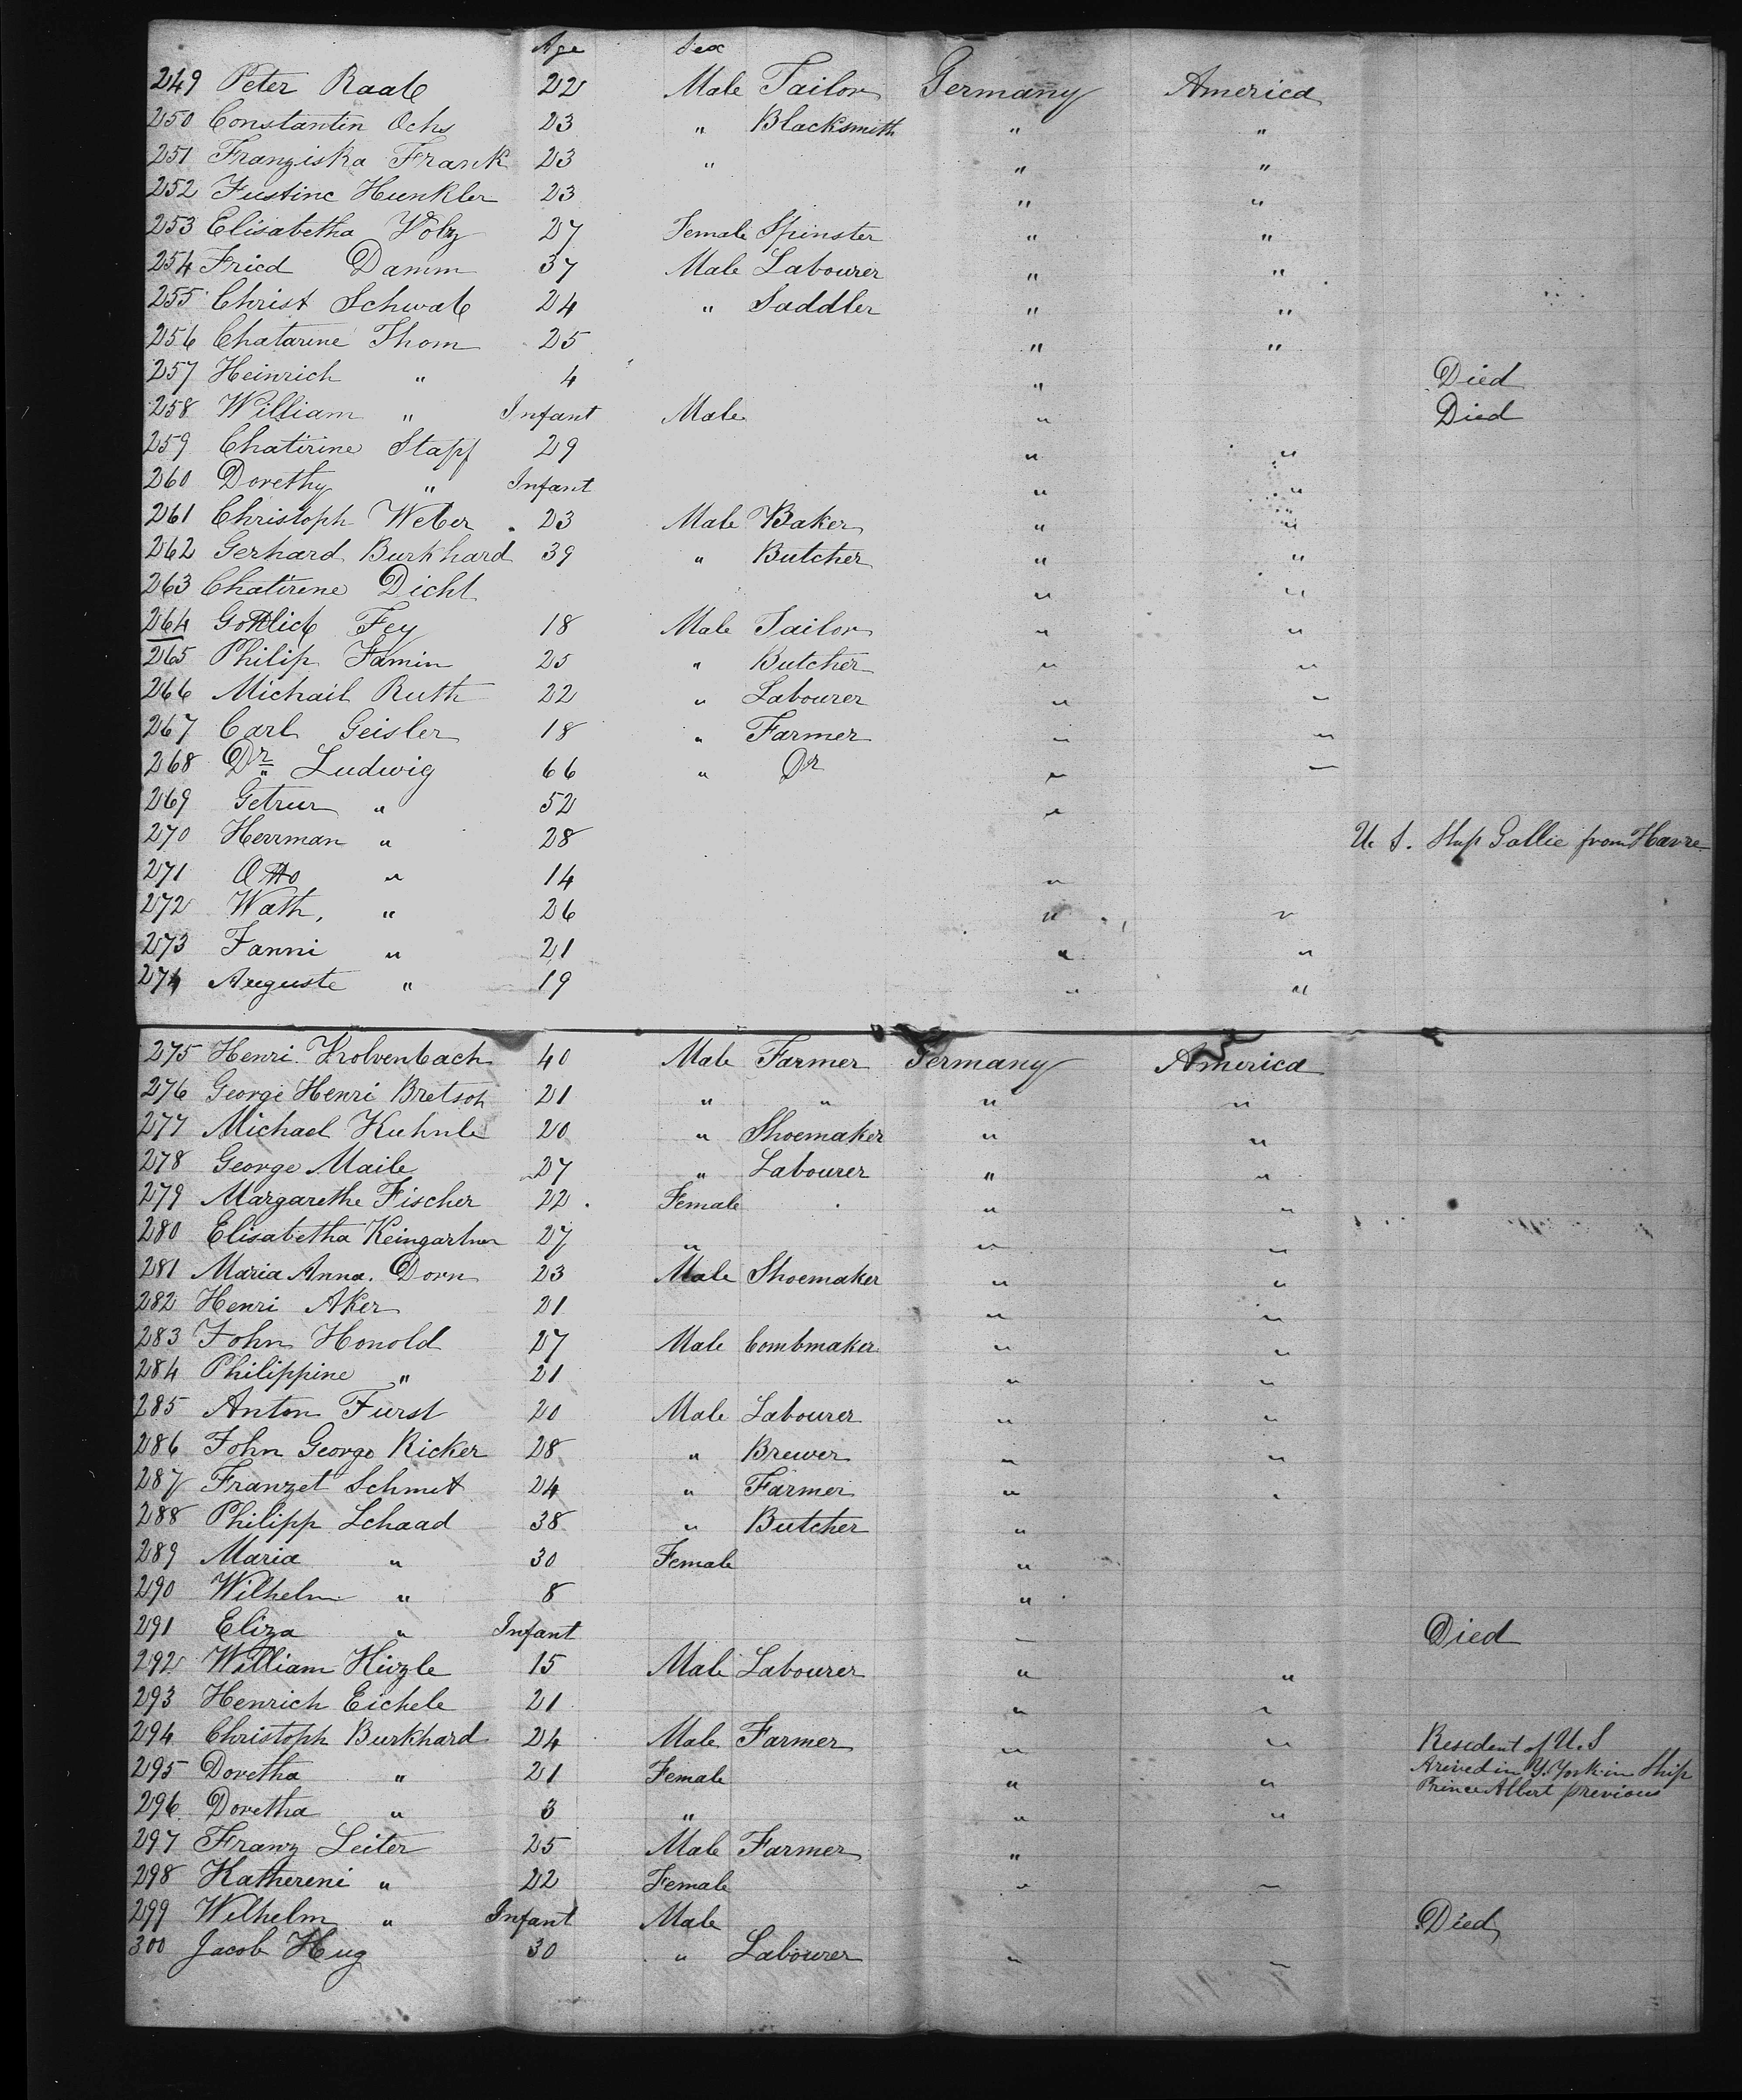 Age Sex
249 Peter Raab 22 Male Tailor Germany America
250 Constantin Ochs 23 " Blacksmith " "
251 Franziska Frank 23 " " "
252 Justine Hunkler 23 " "
253 Elisabetha Volz 27 Female Spinster " "
254 Fried Damm 37 Male Labourer " "
255 Christ Schwab 24 " Saddler " "
256 Chatarine Thom 25 " "
257 Heinrich " 4 " Died
258 William " Infant Male " Died
259 Chatirine Stapf 29 " "
260 Dorethy " Infant " "
261 Christoph Weber 23 Male Baker " "
262 Gerhard Burkhard 39 " Butcher " "
263 Chatirene Dicht " "
264 Gottlieb Fey 18 Male Tailor " "
265 Philip Jamin 25 " Butcher " "
266 Michail Ruth 22 " Labourer " "
267 Carl Geisler 18 " Farmer " "
268 Dr. Ludwig 66 " Dr " "
269 Getrur " 52 "
270 Herrman " 28 U. S. Ship Gallie from Havre
271 Otto " 14 "
272 Wath, " 26 " "
273 Fanni " 21 " "
274 Auguste " 19 " "
275 Henri Krolvenbach 40 Male Farmer Germany America
276 George Henri Bretsch 21 " " " "
277 Michael Kuhnle 20 " Shoemaker " "
278 George Maile 27 " Labourer " "
279 Margarethe Fischer 22 Female " "
280 Elisabetha Keingartner 27 " " "
281 Maria Anna. Dorn 23 Male Shoemaker " "
282 Henri Aker 21 " "
283 John Honold 27 Male Combmaker " "
284 Philippine " 21 " "
285 Anton Furst 20 Male Labourer " "
286 John George Ricker 28 " Brewer " "
287 Franzet Schmit 24 " Farmer " "
288 Philipp Schaad 38 " Butcher "
289 Maria " 30 Female "
290 Wilhelm " 8 "
291 Eliza " Infant " Died
292 William Hizle 15 Male Labourer " "
293 Henrich Eichele 21 " "
294 Christoph Burkhard 24 Male Farmer " " Resedent of U. S
295 Doretha " 21 Female " " Arived in Y. York in Ship
Prince Albert previous
296 Doretha " 3 " " "
297 Franz Leiter 25 Male Farmer "
298 Kathereni " 22 Female " "
299 Wilhelm " Infant Male Died
300 Jacob Hug 30 " Labourer " "